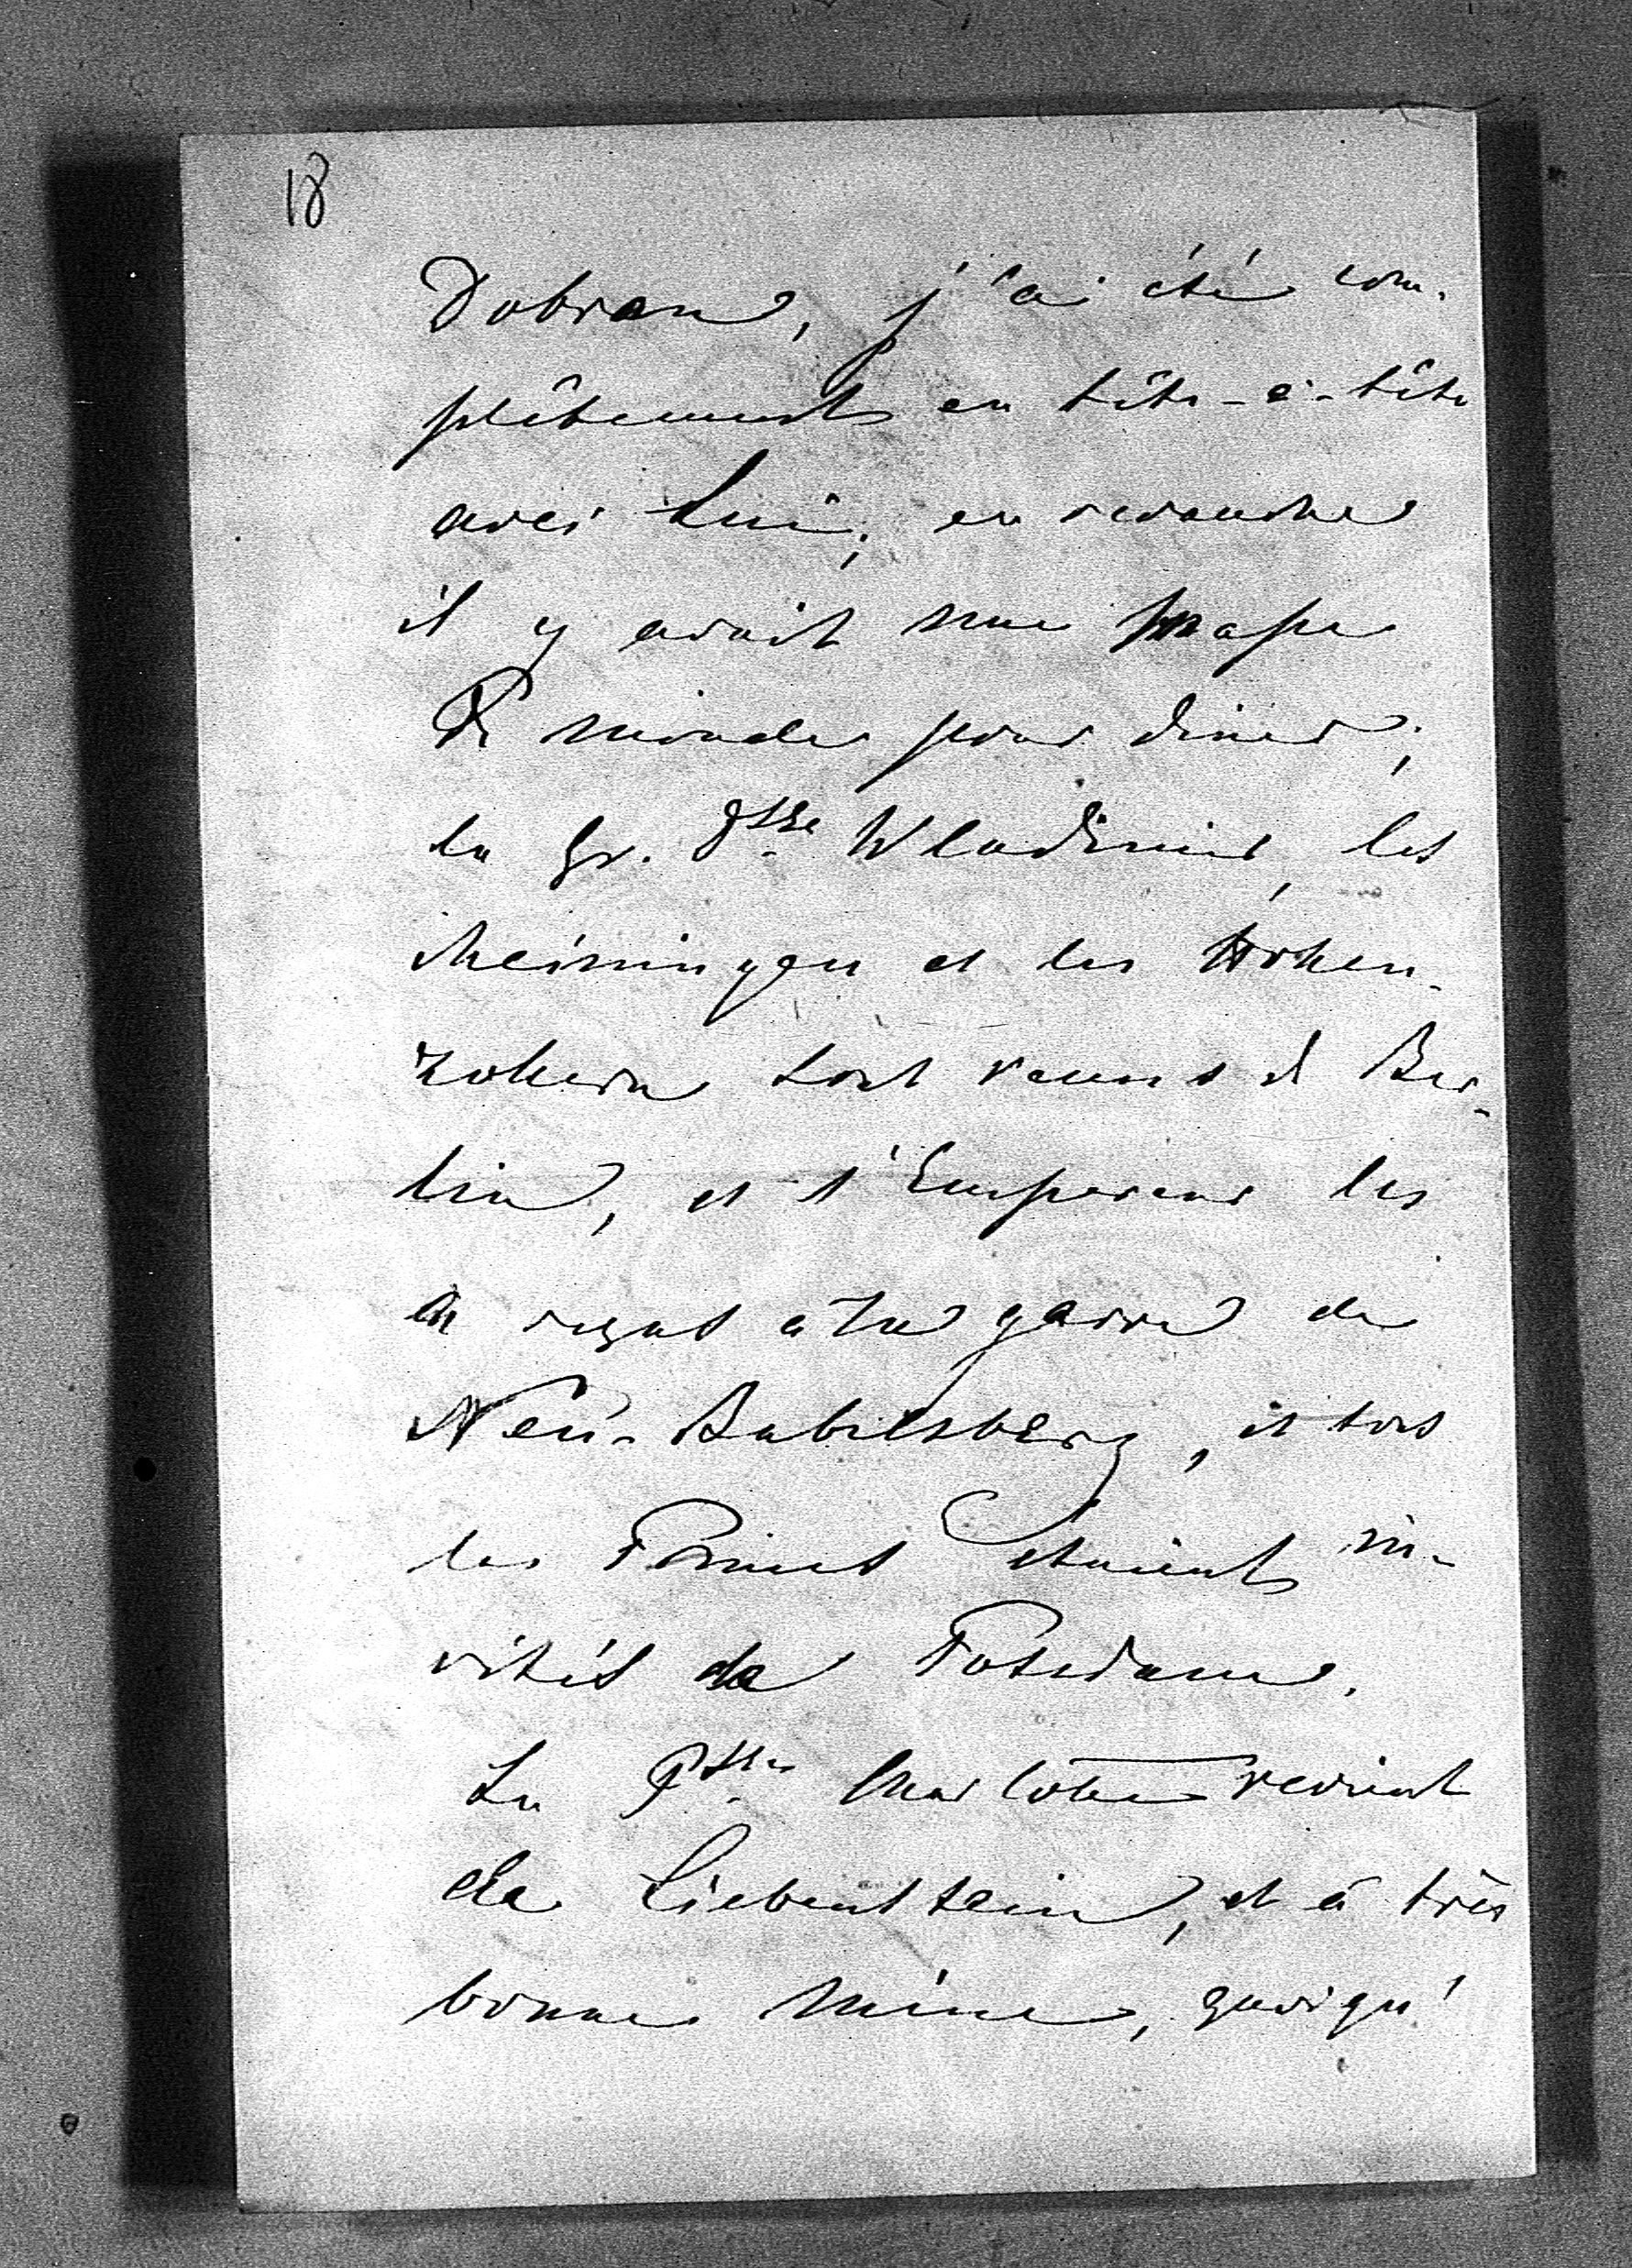 18
Dobran, j'ai été com-
plêtement en tête-à-tête
avec Lui; en revanche
il y avait une masse
de monde pour diner;
la Gr. Dsse Wladimir, les
Meiningen et les Hohen-
zollern sont venus de Ber-
lin, et l'Empereur les
a reçus à la garre de
Neu-Babelsberg, et tous
les Princes etaient in-
vités de Potsdam.
La Psse Charlotte revient
de Liebenstein, et a très
bonne mine, quoiqu'